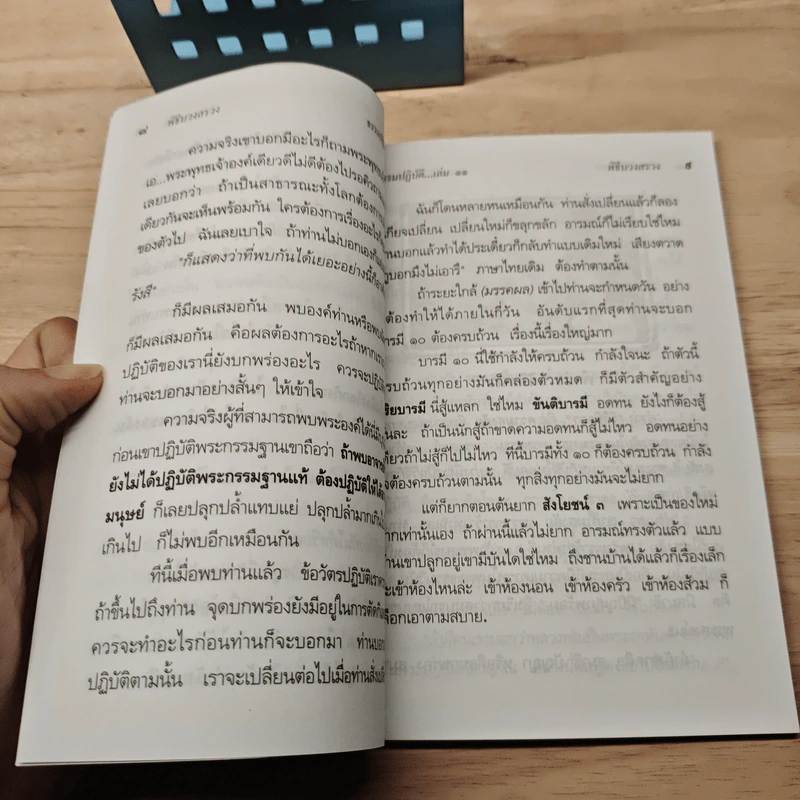 ๘ พิธีบวงสรวง
ความจริงเขาบอกมีอะไรก็ถามพระพุทธ
เอ...พระพุทธเจ้าองค์เดียวดีไม่ดีต้องไปรอคิว
เลยบอกว่า ถ้าเป็นสาธารณะทั้งโลกต้องการ
เดียวกันจะเห็นพร้อมกัน ใครต้องการเรื่องอะไร
ของตัวไป ฉันเลยเบาใจ ถ้าท่านไม่บอกเองก็
"ก็แสดงว่าที่พบกันได้เยอะอย่างนี้ก็
รังสี"
ก็มีผลเสมอกัน พบองค์ท่านหรือพบ
ก็มีผลเสมอกัน คือผลต้องการอะไรถ้าหาก
ปฏิบัติของเรานี่ยังบกพร่องอะไร ควรจะปฏิบัติ
ท่านจะบอกมาอย่างสั้นๆ ให้เข้าใจ
ความจริงผู้ที่สามารถพบพระองค์ได้นี่
ก่อนเขาปฏิบัติพระกรรมฐานเขาถือว่า ถ้าพบอาจารย์
ยังไม่ได้ปฏิบัติพระกรรมฐานแท้ ต้องปฏิบัติให้ได้
มนุษย์ ก็เลยปลุกปล้ำแทบแย่ ปลุกปล้ำมากเกิน
เกินไป ก็ไม่พบอีกเหมือนกัน
ทีนี้เมื่อพบท่านแล้ว ข้อวัตรปฏิบัติเรา
ถ้าขึ้นไปถึงท่าน จุดบกพร่องยังมีอยู่ในการตัด
ควรจะทำอะไรก่อนท่านก็จะบอกมา ท่านบอก
ปฏิบัติตามนั้น เราจะเปลี่ยนต่อไปเมื่อท่านสั่ง
ธรรมปฏิบัติ...เล่ม ๑๑ พิธีบวงสรวง ๙
ฉันก็โดนหลายหนเหมือนกัน ท่านสั่งเปลี่ยนแล้วก็ลอง
เปลี่ยน เปลี่ยนใหม่ก็ขลุกขลัก อารมณ์ก็ไม่เรียบใช่ไหม
บอกแล้วทำได้ประเดี๋ยวก็กลับทำแบบเดิมใหม่ เสียงตวาด
บอกมึงไม่เอารึ" ภาษาไทยเดิม ต้องทำตามนั้น
ถ้าระยะใกล้ (มรรคผล) เข้าไปท่านจะกำหนดวัน อย่าง
ต้องทำให้ได้ภายในกี่วัน อันดับแรกที่สุดท่านจะบอก
บารมี ๑๐ ต้องครบถ้วน เรื่องนี้เรื่องใหญ่มาก
บารมี ๑๐ นี่ใช้กำลังให้ครบถ้วน กำลังใจนะ ถ้าตัวนี้
ครบถ้วนทุกอย่างมันก็คล่องตัวหมด ก็มีตัวสำคัญอย่าง
วิริยบารมี นี่สู้แหลก ใช่ไหม ขันติบารมี อดทน ยังไงก็ต้องสู้
กันละ ถ้าเป็นนักสู้ถ้าขาดความอดทนก็สู้ไม่ไหว อดทนอย่าง
เดียวถ้าไม่สู้ก็ไปไม่ไหว ทีนี้บารมีทั้ง ๑๐ ก็ต้องครบถ้วน กำลัง
ใจต้องครบถ้วนตามนั้น ทุกสิ่งทุกอย่างมันจะไม่ยาก
แต่ก็ยากตอนต้นยาก สังโยชน์ ๓ เพราะเป็นของใหม่
ยากเท่านั้นเอง ถ้าผ่านนี้แล้วไม่ยาก อารมณ์ทรงตัวแล้ว แบบ
บ้านเขาปลูกอยู่เขามีบันไดใช่ไหม ถึงชานบ้านได้แล้วก็เรื่องเล็ก
จะเข้าห้องไหนล่ะ เข้าห้องนอน เข้าห้องครัว เข้าห้องส้วม ก็
เลือกเอาตามสบาย.